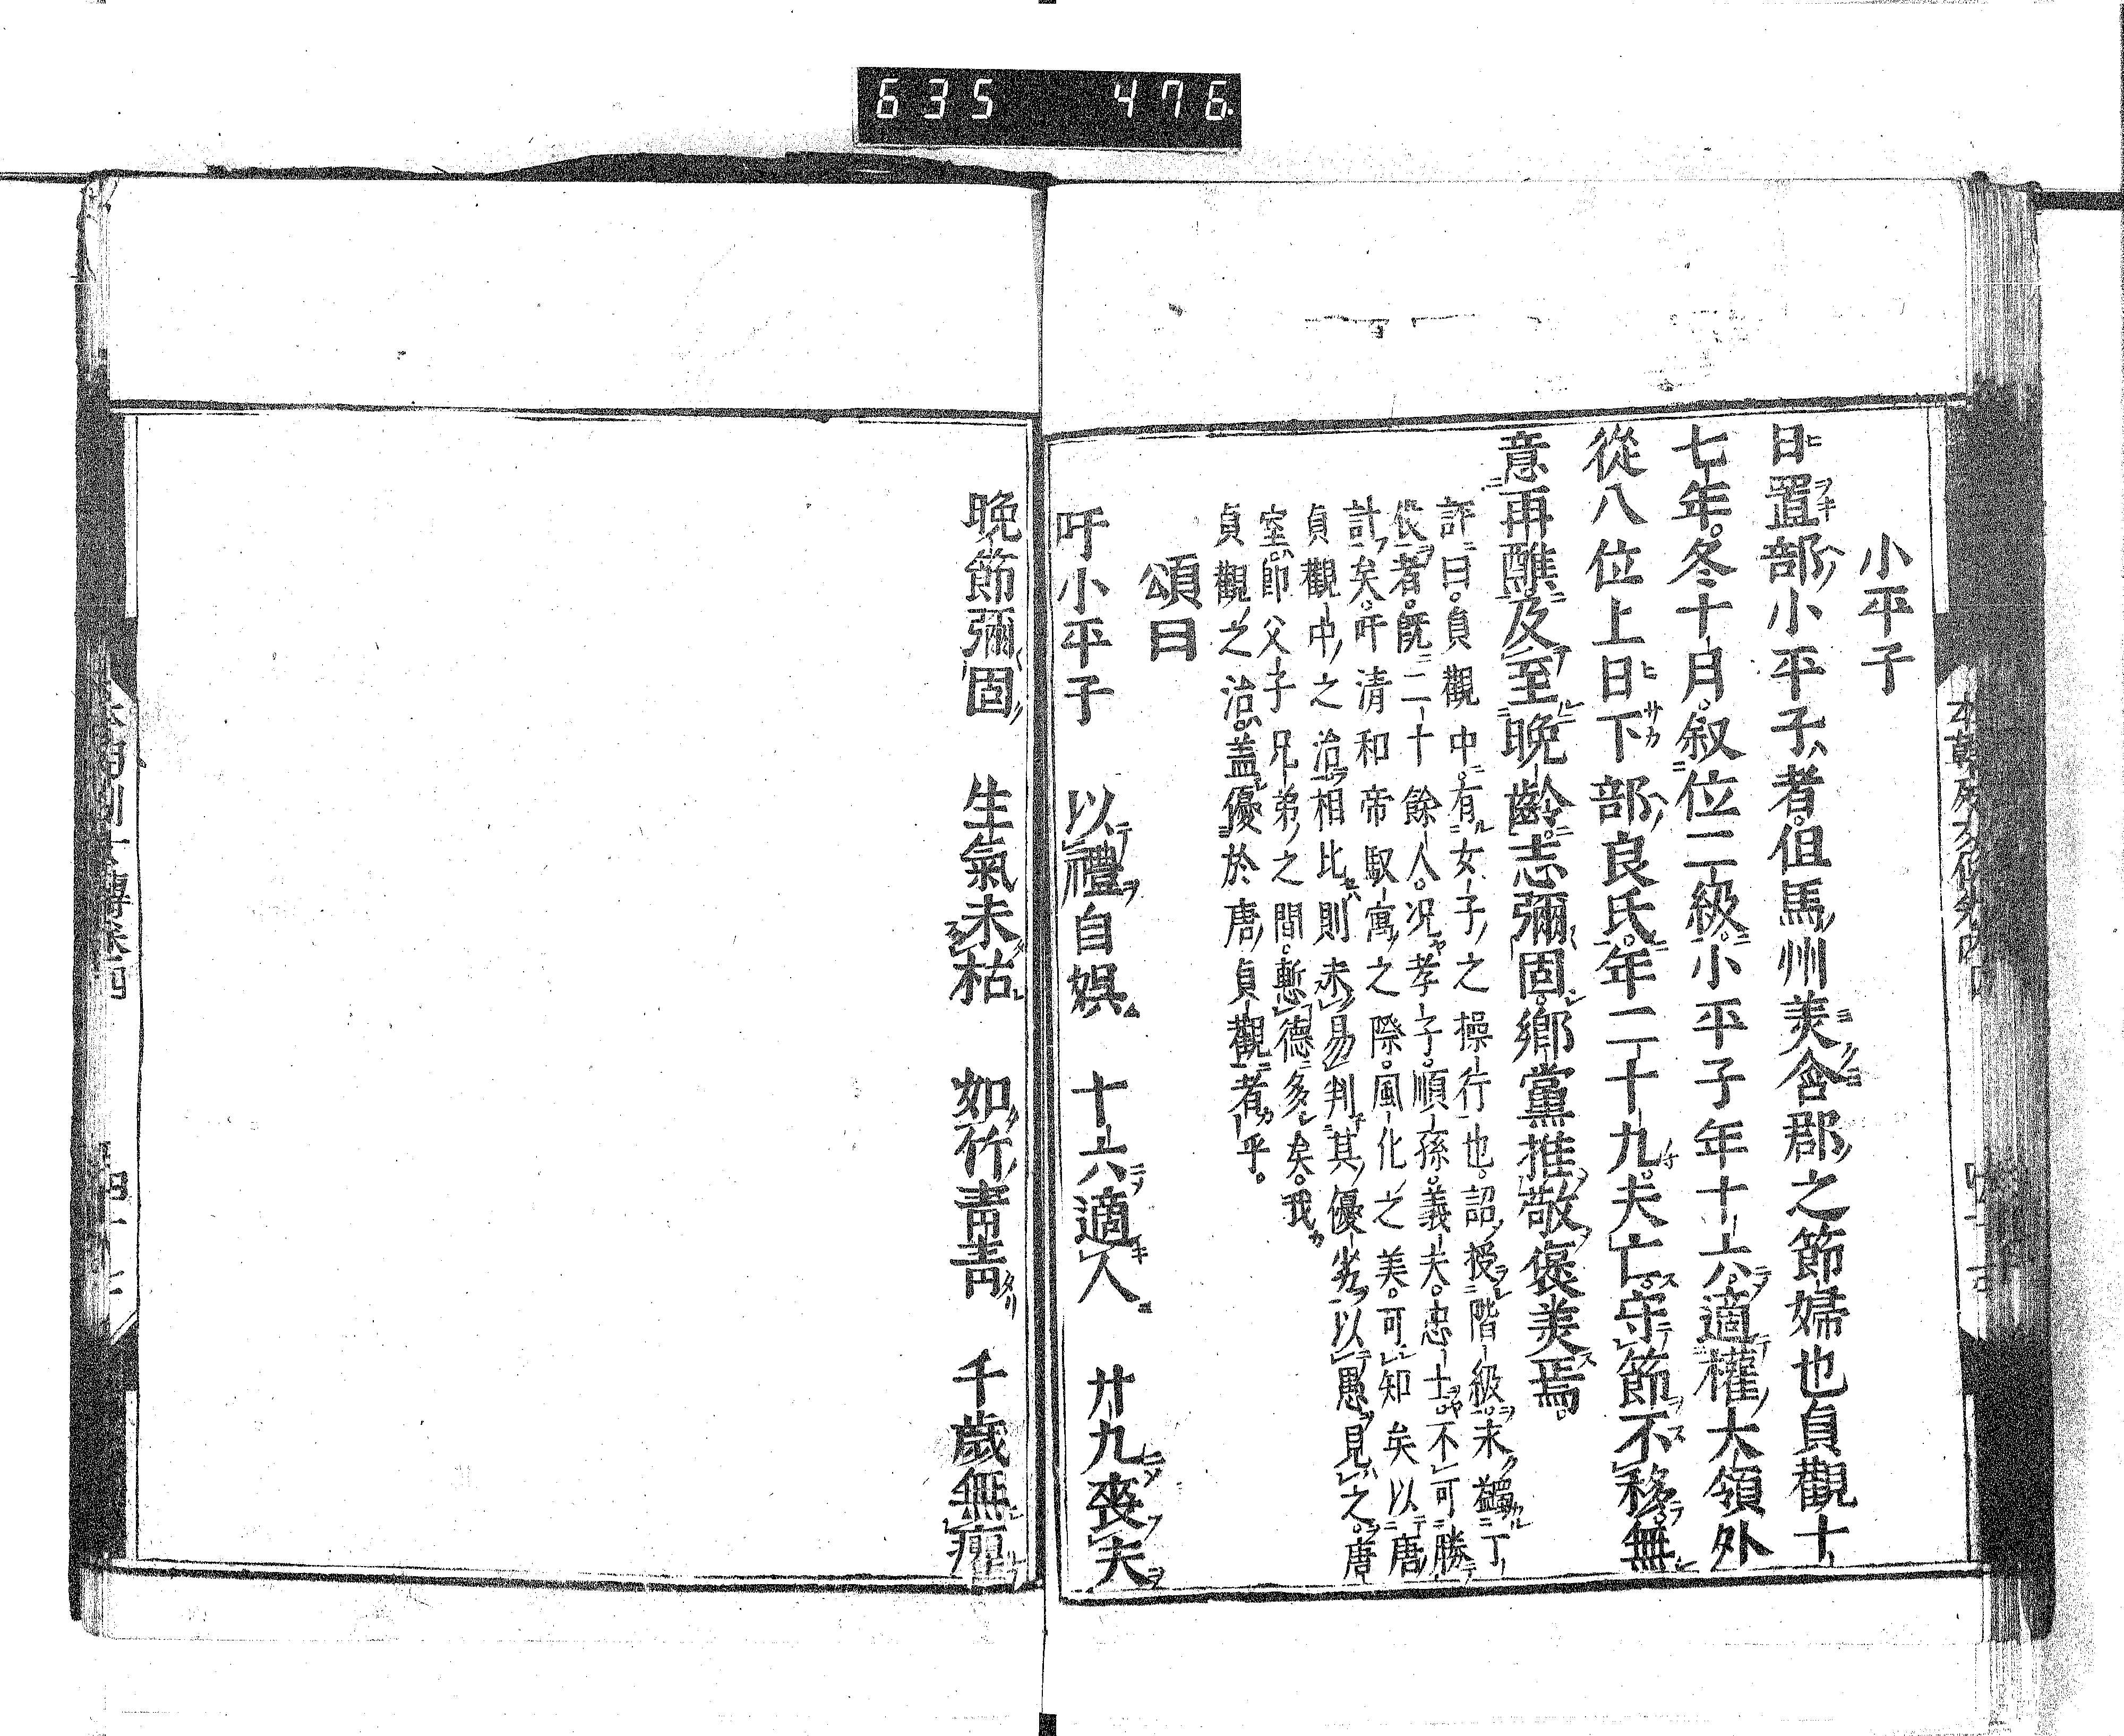 635 476
小平子
日置部小平子者但馬州美含郡之節婦也貞觀十
七年冬十月叙位二級小平子年十六適權大領外
從八位上日下部良氏年二十九夫亡守節不移無
意再醮及至晩齡志彌固鄉黨推敬襃美焉
評曰貞觀中有女子之操行也詔授階級末蠲丁
役者既二十餘人况孝子順孫義夫忠士不可勝
計矣吁清和帝馭寓之際風化之美可知矣以唐
貞觀中之治相比則未易判其優劣以愚見之唐
室即父子兄弟之間慙德多矣我
貞觀之治蓋優於唐貞觀者乎
頌曰
吁小平子 以禮自娛 十六適人 廿九喪夫
晩節彌固 生氣未枯 如竹靑靑 千歲無